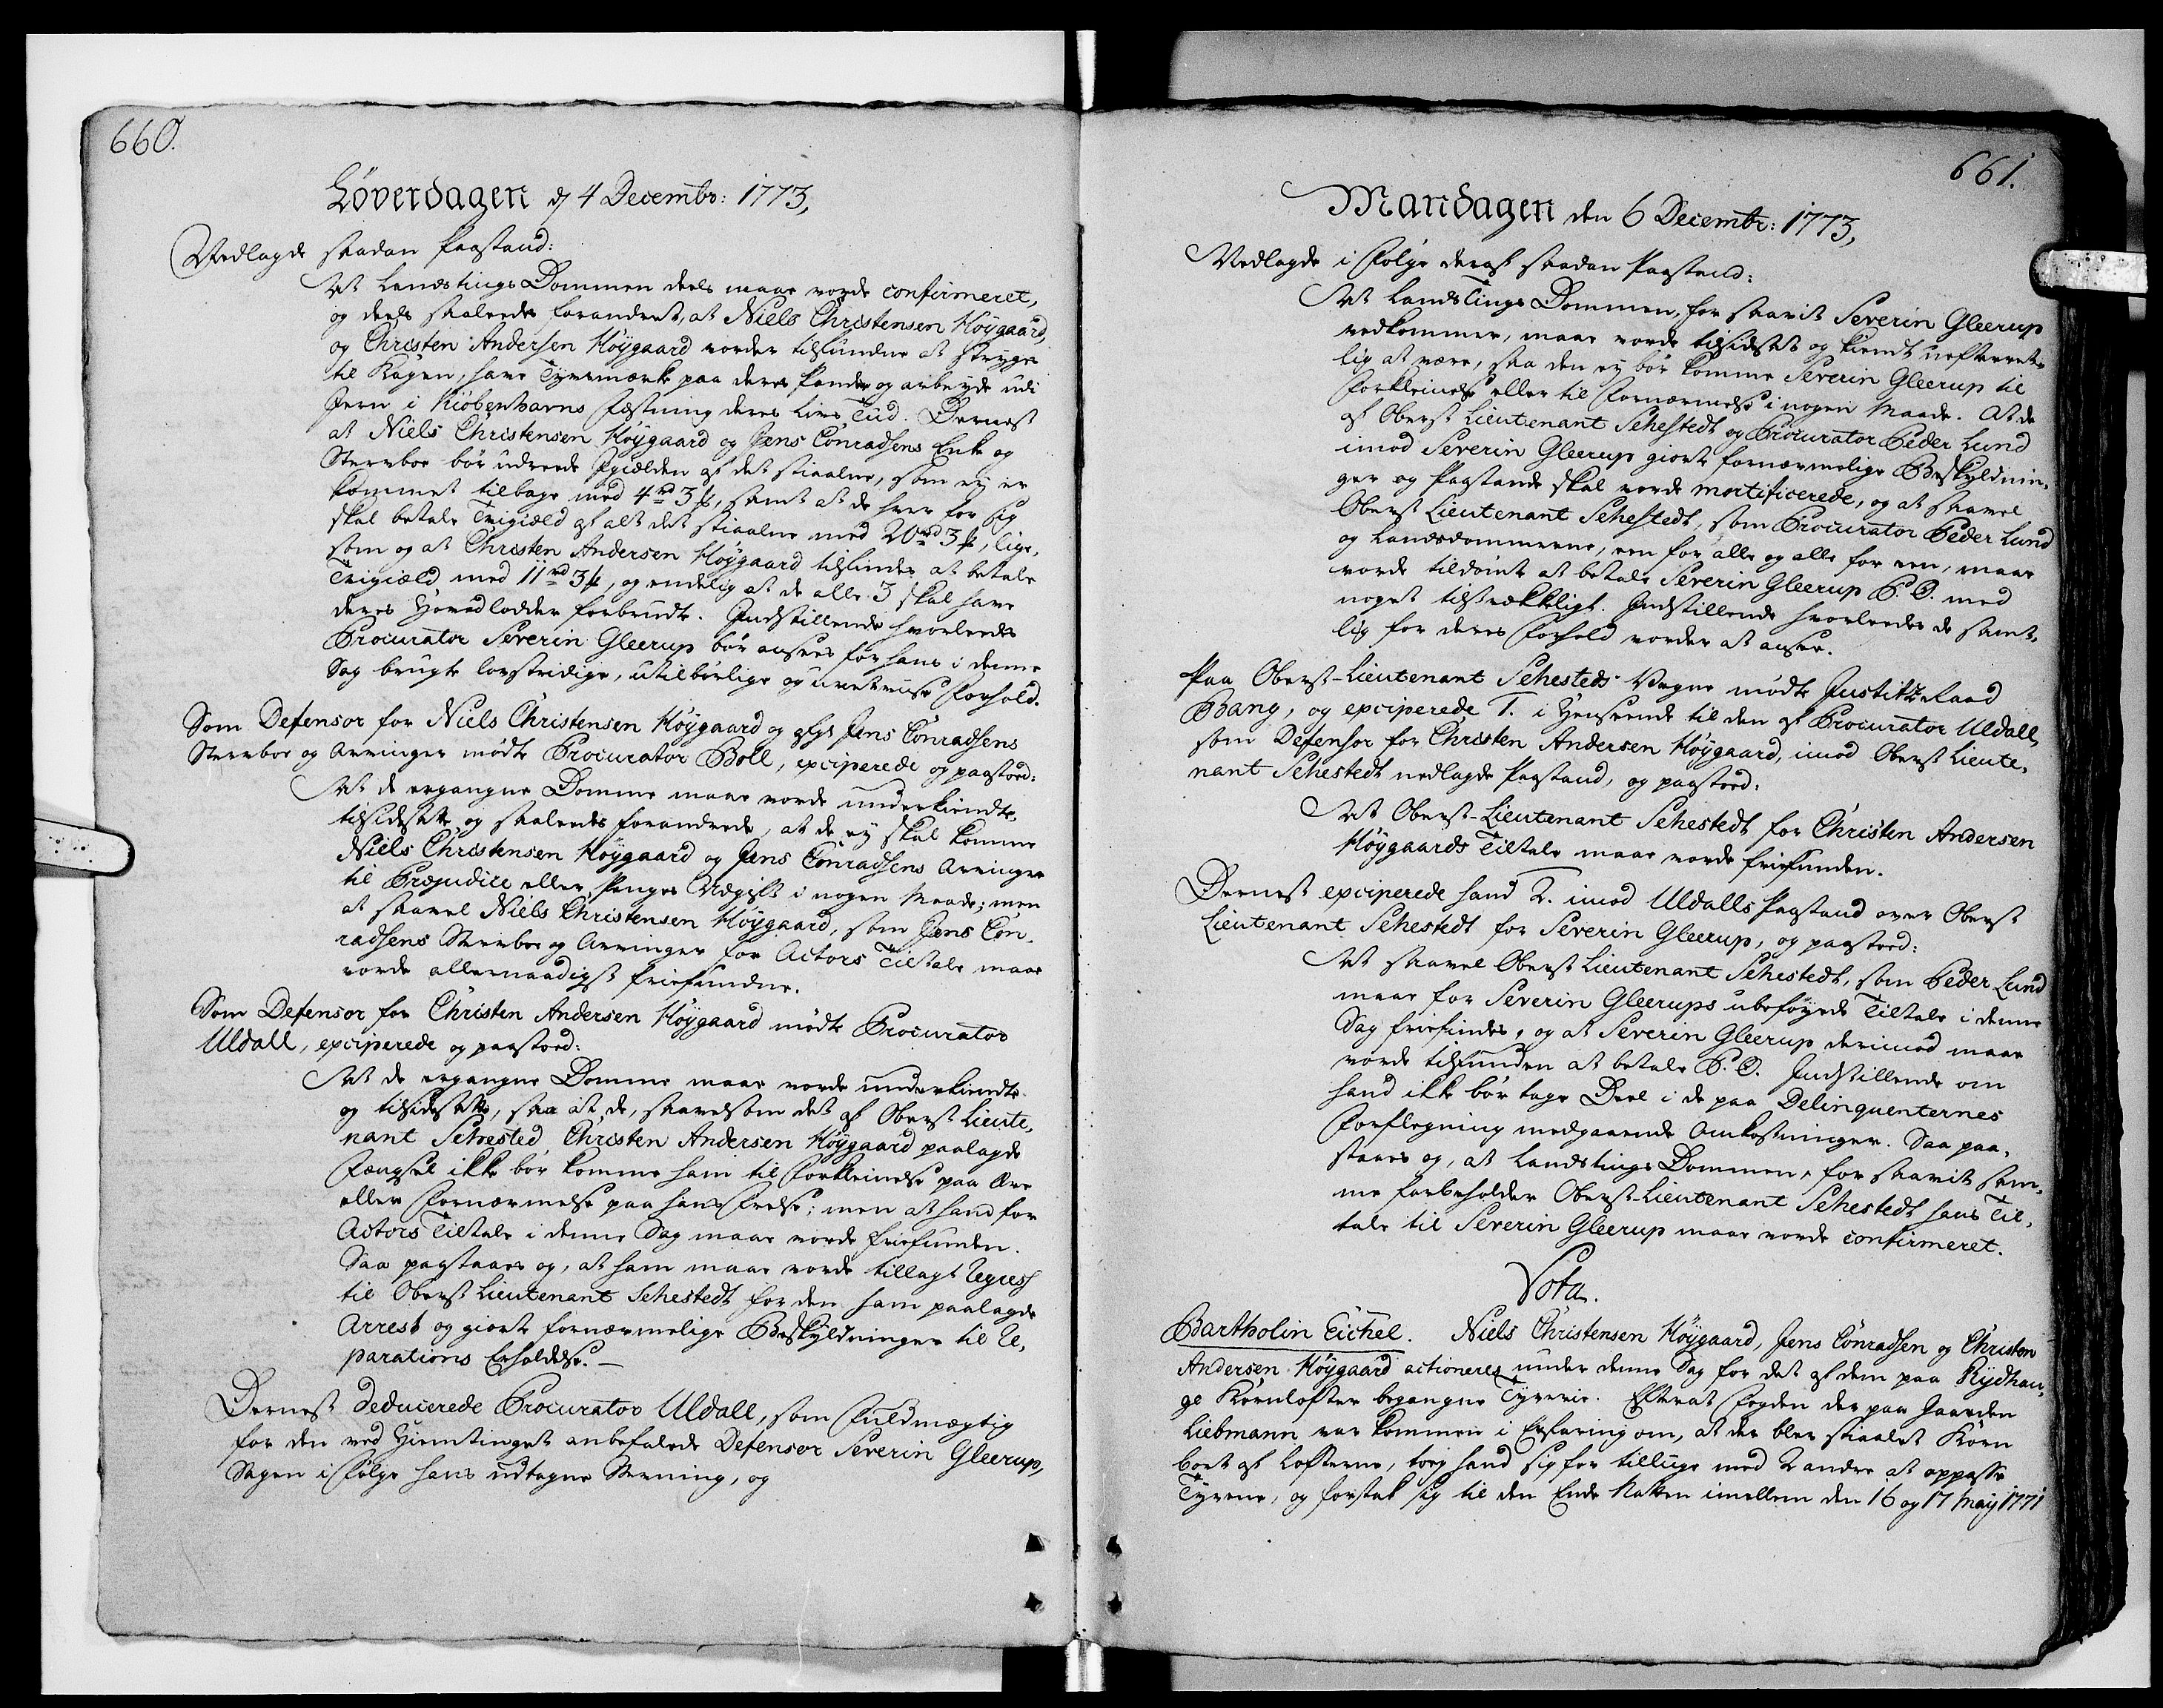 660.
Løverdagen d 4 Decembr: 1773,
Nedlagde saadan Paastand:
At Landstings Dommen deels maae vorde confirmeret,
og deels saaledes forandret, at Niels Christensen Höygaard,
og Christen Andersen Höygaard vorder tilfundne at stryges
til Kagen, have Tyvemærke paa deres Pande og arbeyde udi
Jern i Kiöbenhavns Fæstning deres Livs Tiid. Dernest
at Niels Christensen Höygaard og Jens Conradsens Enke og
Sterboe bör udreede Igiælden af det stiaalne, som ey er
kommet tilbage med 4 rd 3 ß, samt at de hver for sig
skal betale Tvigiæld af alt det stiaalne med 20 rd 3 ß, lige,
som og at Christen Andersen Höygaard tilfindes at betale
Tvigiæld med 11 rd 3 ß, og endelig at de alle 3 skal have
deres Hovedlodder forbrudt. Indstillende hvorleedes
Procurator Severin Gleerup bör ansees for hans i denne
Sag brugte lovstridige, utilbörlige og uretviise Forhold.
Som Defensor for Niels Christensen Höygaard og afg: Jens Conradsens
Sterboe og Arvinger mödte Procurator Boll, exciperede og paastoed:
At de ergangne Domme maae vorde underkiendte,
tilsidesatte og saaledes forandrede, at de ey skal komme
Niels Christensen Höygaard og Jens Conradsens Arvinger
til Præjudice eller Penges Udgift i nogen Maade; men
at saavel Niels Christensen Höygaard, som Jens Con,
radsens Sterboe og Arvinger for Actors Tiltale maae
vorde allernaadigst friefundne.
Som Defensor for Christen Andersen Höygaard mödte Procurator
Uldall, exciperede og paastoed:
At de ergangne Domme maae vorde underkiendte
og tilsidesatte, saa at de, saavelsom det af Oberst Lieute,
nant Sehested, Christen Andersen Höygaard paalagde
Fængsel ikke bör komme ham til Forkleinelse paa Ære
eller Fornærmelse paa hans Frelse; men at hand for
Actors Tiltale i denne Sag maae vorde friefunden.
Saa paastaaes og, at ham maae vorde tillagt Regress
til Oberst Lieutenant Sehestedt for den ham paalagde
Arrest og giorte fornærmelige Beskyldninger til Re,
parations Erholdelse. —
Dernest deducerede Procurator Uldall, som Fuldmægtig
for den ved Hiemtinget anbefalede Defensor Severin Gleerup,
Sagen i Fölge hans udtagne Stevning, og
661.
Mandagen den 6 Decembr: 1773,
Nedlagde i Fölge deraf saadan Paastand:
At Landstings Dommen, for saavit Severin Gleerup
vedkommer, maae vorde tilsidesat og kiendt uefterrette,
lig at være, saa den ey bör komme Severin Gleerup til
Forkleinelse eller til Fornærmelse i nogen Maade. At de
af Oberst Lieutenant Sehestedt og Procurator Peder Lund
imod Severin Gleerup giorte fornærmelige Beskyldnin,
ger og Paastande skal vorde mortificerede, og at saavel
Oberst Lieutenant Sehestedt, som Procurator Peder Lund
og Landsdommerne, een for alle og alle for een, maae
vorde tildömt at betale Severin Gleerup P. O. med
noget tilstrækkeligt. Indstillende hvorleedes de samt,
lig for deres Forhold vorder at ansee.
Paa Oberst-Lieutenant Sehesteds Vegne mödte Justitz-Raad
Bang, og exciperede 1. i Henseende til den af Procurator Uldall,
som Defensor for Christen Andersen Höygaard, imod Oberst Lieute,
nant Sehestedt nedlagde Paastand, og paastoed:
At Oberst-Lieutenant Sehestedt for Christen Andersen
Höygaards Tiltale maae vorde friefunden.
Dernest exciperede hand 2. imod Uldalls Paastand over Oberst
Lieutenant Sehestedt for Severin Gleerup, og paastoed:
At saavel Oberst Lieutenant Sehestedt, som Peder Lund
maae for Severin Gleerups ubeföyede Tiltale i denne
Sag friefindes, og at Severin Gleerup derimod maae
vorde tilfunden at betale P. O. Indstillende om
hand ikke bör tage Deel i de paa Delinquenternes
Forflegning medgaaende Omkostninger. Saa paa,
staaes og, at Landstings Dommen, for saavit sam,
me forbeholder Oberst-Lieutenant Sehestedt hans Til,
tale til Severin Gleerup maae vorde confirmeret.
Vota.
Bartholin Eichel. Niels Christensen Höygaard, Jens Conradsen og Christen
Andersen Höygaard actioneres under denne Sag for det af dem paa Rydhau,
ge Kornlofter begangne Tyverie. Efterat Fogden der paa Gaarden
Liebmann var kommen i Erfaring om, at der blev stiaalet Korn
bort af Lofterne, toeg hand sig for tillige med 2 andre at oppasse
Tyvene, og forstak sig til den Ende Natten imellem den 16 og 17 May 1771